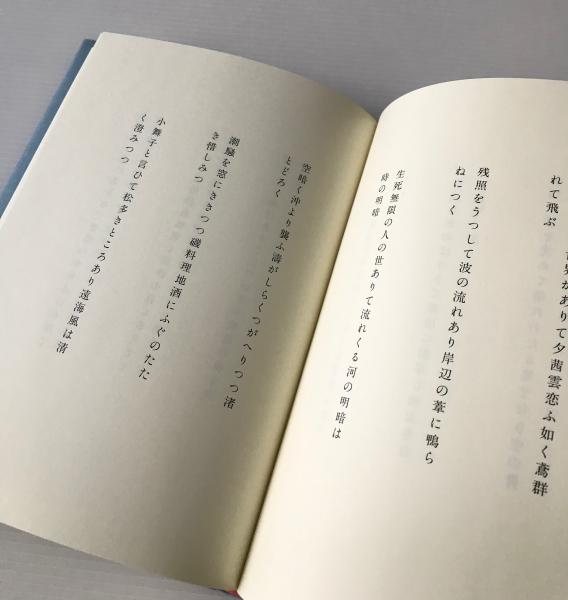 界がありて夕茜雲恋ふ如く鳶群
れて飛ぶ
残照をうつして波の流れあり岸辺の葦に鴨ら
ねにつく
生死無限の人の世ありて流れくる河の明暗は
時の明暗
空暗く沖より襲ふ濤がしらくつがへりつつ渚
とどろく
潮騒を窓にききつつ磯料理地酒にふぐのたた
き惜しみつ
小舞子と言ひて松多きところあり遠海風は清
く澄みつつ